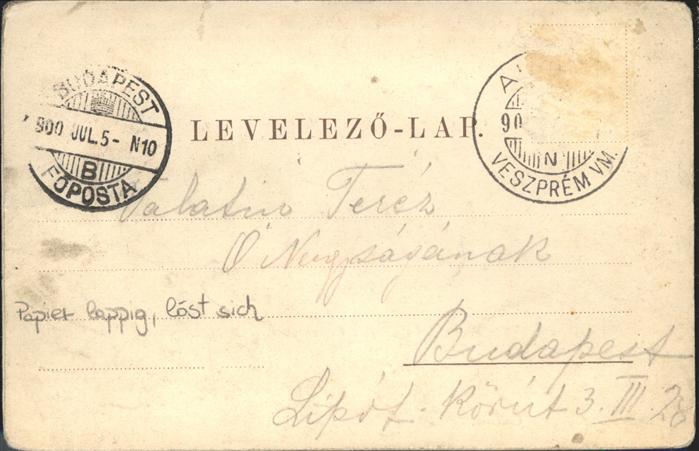 BUDAPEST
900 JUL. 5- N10
B
FŐPOSTA
LEVELEZŐ-LAP.
A
90
N
VESZPRÉM VM.
Palatin Teréz
Ő Nagyságának
Papier lappig, löst sich
Budapest
Lipót-Körút 3. III. 28